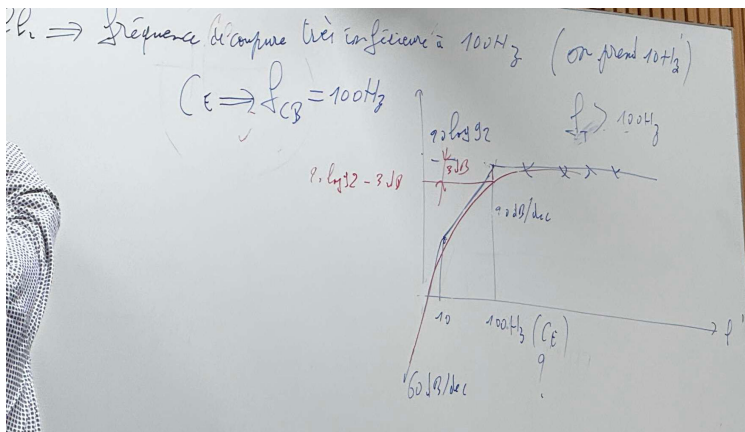 ⟹ fréquence de coupure très inférieure à 100Hz (on prend 10Hz)
CE ⟹ fCB = 100Hz
20 log 92
f > 100Hz
3dB
20 log 92 - 3dB
20dB/dec
10 100Hz (CE) f
?
60dB/dec